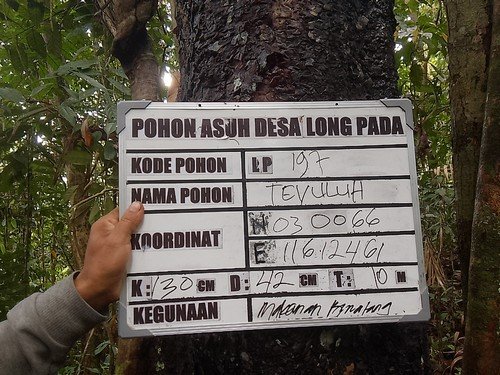 POHON ASUH DESA LONG PADA
KODE POHON LP 197
NAMA POHON TEVULUH
KOORDINAT N 03.0066
E 116.12461
K: 130 CM D: 42 CM T: 10 M
KEGUNAAN Makanan Binatang